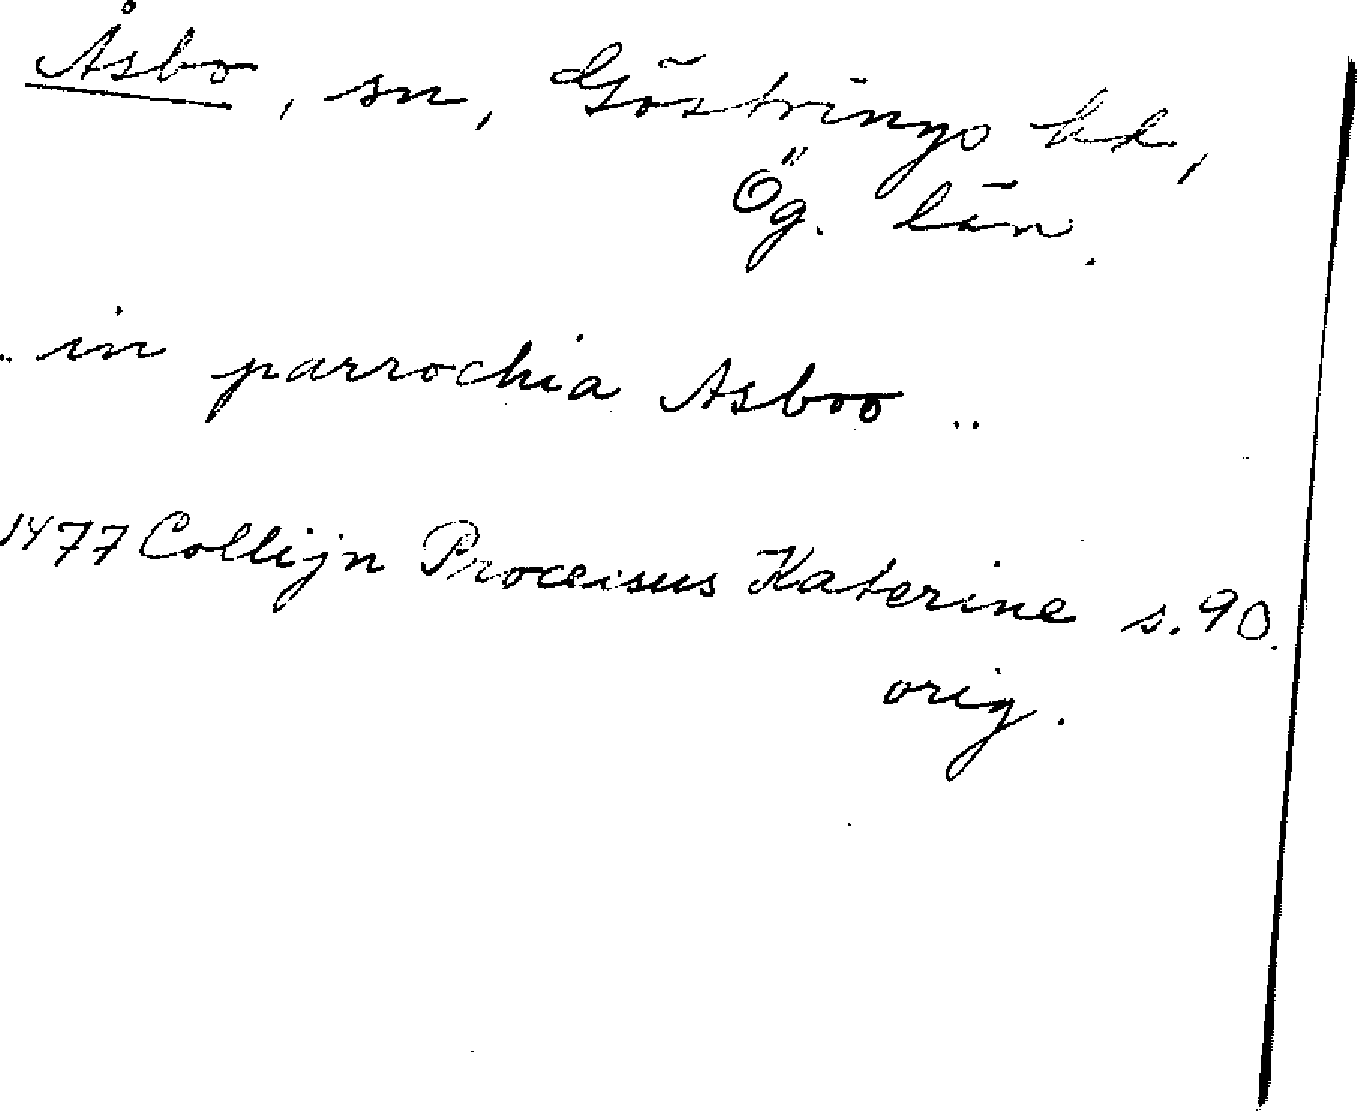 Åsbo, sn, Göstrings hd,
Ög. län.
.. in parrochia Asboo ..
1477 Collijn Processus Katerine s. 90.
orig.